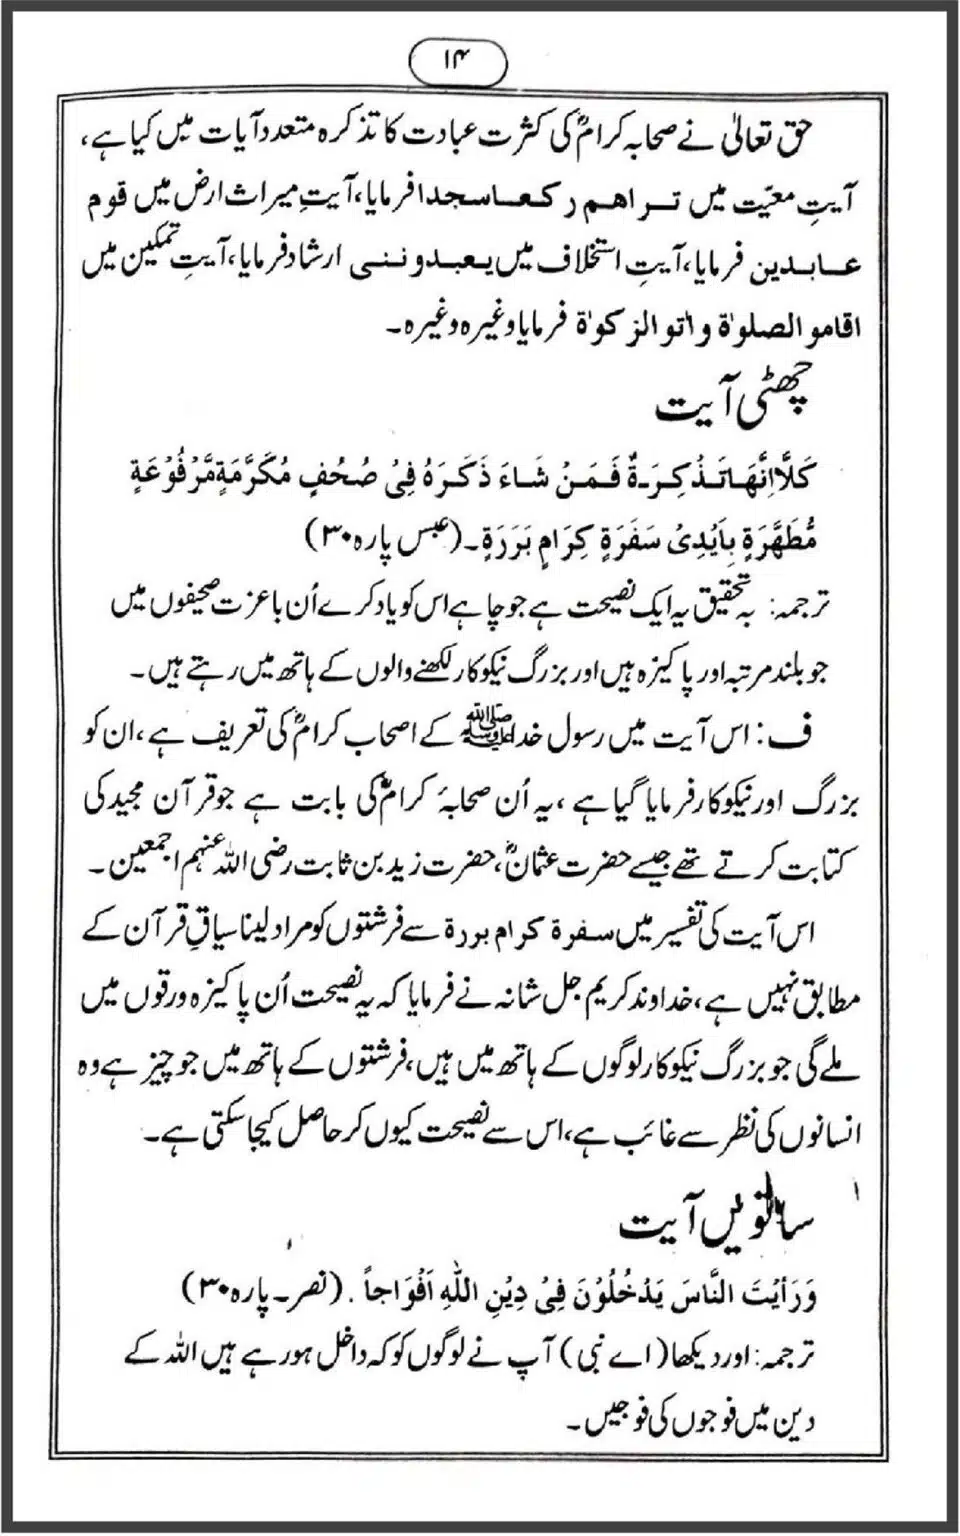 ۱۴
حق تعالیٰ نے صحابہ کرامؓ کی کثرت عبادت کا تذکرہ متعدد آیات میں کیا ہے،
آیتِ معیّت میں تراهم رکعا سجدا فرمایا، آیتِ میراث ارض میں قوم
عابدین فرمایا، آیتِ استخلاف میں یعبدوننی ارشاد فرمایا، آیتِ تمکین میں
اقاموا لصلوٰة واٰتوا الزکوٰة فرمایا وغیرہ وغیرہ۔
چھٹی آیت
کَلَّا اِنَّهَا تَذْکِرَةٌ فَمَنْ شَاءَ ذَکَرَهُ فِیْ صُحُفٍ مُکَرَّمَةٍ مَّرْفُوْعَةٍ
مُّطَهَّرَةٍ بِاَیْدِیْ سَفَرَةٍ کِرَامٍ بَرَرَةٍ۔ (عبس پارہ ۳۰)
ترجمہ: بہ تحقیق یہ ایک نصیحت ہے جو چاہے اس کو یاد کرے اُن باعزت صحیفوں میں
جو بلند مرتبہ اور پاکیزہ ہیں اور بزرگ نیکوکار لکھنے والوں کے ہاتھ میں رہتے ہیں۔
ف: اس آیت میں رسول خدا ﷺ کے اصحاب کرامؓ کی تعریف ہے، ان کو
بزرگ اور نیکوکار فرمایا گیا ہے، یہ اُن صحابۂ کرامؓ کی بابت ہے جو قرآن مجید کی
کتابت کرتے تھے جیسے حضرت عثمانؓ، حضرت زید بن ثابت رضی اللہ عنہم اجمعین۔
اس آیت کی تفسیر میں سفرة کرام بررة سے فرشتوں کو مراد لینا سیاقِ قرآن کے
مطابق نہیں ہے، خداوند کریم جل شانہ نے فرمایا کہ یہ نصیحت اُن پاکیزہ ورقوں میں
ملے گی جو بزرگ نیکوکار لوگوں کے ہاتھ میں ہیں، فرشتوں کے ہاتھ میں جو چیز ہے وہ
انسانوں کی نظر سے غائب ہے، اس سے نصیحت کیوں کر حاصل کیجا سکتی ہے۔
ساتویں آیت
وَرَأیْتَ النَّاسَ یَدْخُلُوْنَ فِیْ دِیْنِ اللّٰهِ اَفْوَاجاً۔ (نصر۔ پارہ ۳۰)
ترجمہ: اور دیکھا (اے نبی) آپ نے لوگوں کو کہ داخل ہو رہے ہیں اللہ کے
دین میں فوجوں کی فوجیں۔